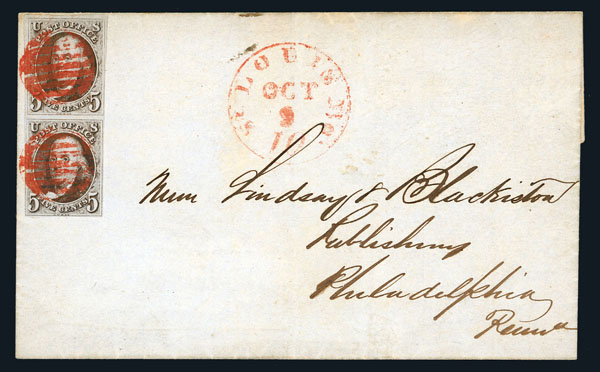 U S
POST OFFICE
5 FIVE CENTS 5
U S
POST OFFICE
5 FIVE CENTS 5
ST LOUIS Mo.
OCT
9
10
Lindsay & Blackiston
Publishing
Philadelphia
Penna